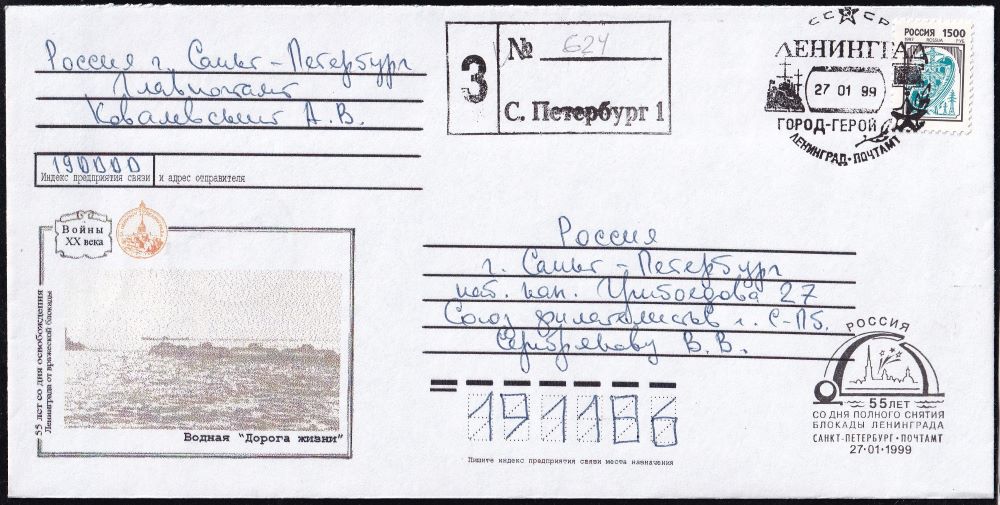 Россия г. Санкт-Петербург
Главпочтамт
Ковалевский А.В.
190000
Индекс предприятия связи и адрес отправителя
З
№ 624
С. Петербург 1
СССР
ЛЕНИНГРАД
27 01 99
ГОРОД-ГЕРОЙ
ЛЕНИНГРАД • ПОЧТАМТ
РОССИЯ 1500
1997 ROSSIJA РУБ
Войны
XX века
55 лет со дня освобождения
Ленинграда от вражеской блокады
Водная "Дорога жизни"
Россия
г. Санкт-Петербург
наб. кан. Грибоедова 27
Союз филателистов г. С-Пб.
Серебрякову В.В.
191186
Пишите индекс предприятия связи места назначения
РОССИЯ
55 ЛЕТ
СО ДНЯ ПОЛНОГО СНЯТИЯ
БЛОКАДЫ ЛЕНИНГРАДА
САНКТ-ПЕТЕРБУРГ • ПОЧТАМТ
27•01•1999